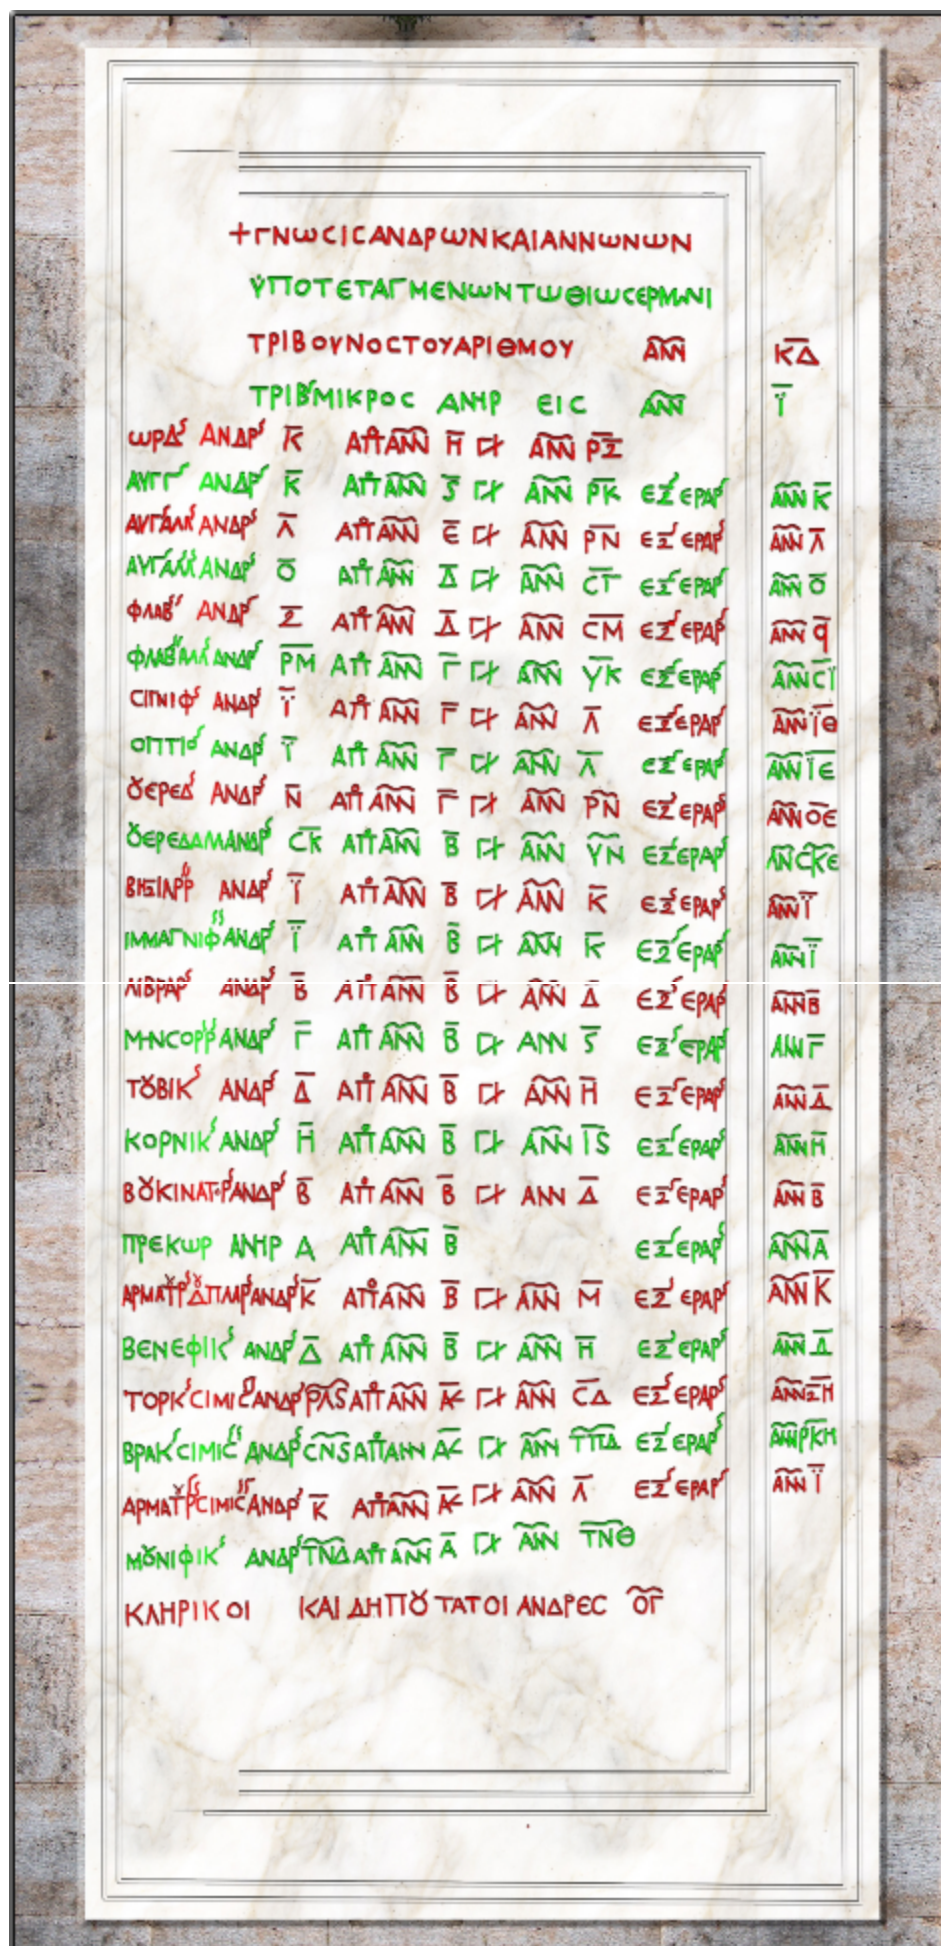 +ΓΝωCΙCΑΝΔΡωΝΚΑΙΑΝΝωΝωΝ
ΫΠΟΤΕΤΑΓΜΕΝωΝΤωΘΙωCΕΡΜωΝΙ
ΤΡΙΒΟΥΝΟCΤΟΥΑΡΙΘΜΟΥ ΑΝΝ ΚΔ
ΤΡΙΒΜΙΚΡΟC ΑΝΗΡ ΕΙC ΑΝΝ Ϊ
ωΡΔ ΑΝΔΡ Κ ΑΠ ΑΝΝ Η ΓΙ ΑΝΝ ΡΞ
ΑΥΓΓ ΑΝΔΡ Κ ΑΠ ΑΝΝ Ϛ ΓΙ ΑΝΝ ΡΚ ΕΞ ΕΡΑΡ ΑΝΝ Κ
ΑΥΓΑΛΚ ΑΝΔΡ Λ ΑΠ ΑΝΝ Ε ΓΙ ΑΝΝ ΡΝ ΕΞ ΕΡΑΡ ΑΝΝ Λ
ΑΥΓΑΛΚ ΑΝΔΡ Ο ΑΠ ΑΝΝ Δ ΓΙ ΑΝΝ CΠ ΕΞ ΕΡΑΡ ΑΝΝ Ο
ΦΛΑΒ ΑΝΔΡ Ξ ΑΠ ΑΝΝ Δ ΓΙ ΑΝΝ CΜ ΕΞ ΕΡΑΡ ΑΝΝ Ϥ
ΦΛΑΒΑΛΚ ΑΝΔΡ ΡΜ ΑΠ ΑΝΝ Γ ΓΙ ΑΝΝ ΥΚ ΕΞ ΕΡΑΡ ΑΝΝ CΪ
CΙΓΝΙΦ ΑΝΔΡ Ϊ ΑΠ ΑΝΝ Γ ΓΙ ΑΝΝ Λ ΕΞ ΕΡΑΡ ΑΝΝ ΪΕ
ΟΠΤΙΟ ΑΝΔΡ Ϊ ΑΠ ΑΝΝ Γ ΓΙ ΑΝΝ Λ ΕΞ ΕΡΑΡ ΑΝΝ ΪΕ
ȢΕΡΕΔ ΑΝΔΡ Ν ΑΠ ΑΝΝ Γ ΓΙ ΑΝΝ ΡΝ ΕΞ ΕΡΑΡ ΑΝΝ ΟΕ
ȢΕΡΕΔΑΛΛ ΑΝΔΡ CΚ ΑΠ ΑΝΝ Β ΓΙ ΑΝΝ ΥΝ ΕΞ ΕΡΑΡ ΑΝ CΚΕ
ΒΗΞΙΛΡΡ ΑΝΔΡ Ϊ ΑΠ ΑΝΝ Β ΓΙ ΑΝΝ Κ ΕΞ ΕΡΑΡ ΑΝΝ Ϊ
ΙΜΜΑΓΝΙΦ ΑΝΔΡ Ϊ ΑΠ ΑΝΝ Β ΓΙ ΑΝΝ Κ ΕΞ ΕΡΑΡ ΑΝΝ Ϊ
ΛΙΒΡΑΡ ΑΝΔΡ Β ΑΠ ΑΝΝ Β ΓΙ ΑΝΝ Δ ΕΞ ΕΡΑΡ ΑΝΝ Β
ΜΗΝCΟΡΡ ΑΝΔΡ Γ ΑΠ ΑΝΝ Β ΓΙ ΑΝΝ Ϛ ΕΞ ΕΡΑΡ ΑΝΝ Γ
ΤȢΒΙΚ ΑΝΔΡ Δ ΑΠ ΑΝΝ Β ΓΙ ΑΝΝ Η ΕΞ ΕΡΑΡ ΑΝΝ Δ
ΚΟΡΝΙΚ ΑΝΔΡ Η ΑΠ ΑΝΝ Β ΓΙ ΑΝΝ ΙϚ ΕΞ ΕΡΑΡ ΑΝΝ Η
ΒȢΚΙΝΑΤΡ ΑΝΔΡ Β ΑΠ ΑΝΝ Β ΓΙ ΑΝΝ Δ ΕΞ ΕΡΑΡ ΑΝΝ Β
ΠΡΕΚωΡ ΑΝΗΡ Α ΑΠ ΑΝΝ Β ΕΞ ΕΡΑΡ ΑΝΝ Α
ΑΡΜΑΤȢΡ ΔȢΠΛΑΡ ΑΝΔΡ Κ ΑΠ ΑΝΝ Β ΓΙ ΑΝΝ Μ ΕΞ ΕΡΑΡ ΑΝΝ Κ
ΒΕΝΕΦΙΚ ΑΝΔΡ Δ ΑΠ ΑΝΝ Β ΓΙ ΑΝΝ Η ΕΞ ΕΡΑΡ ΑΝΝ Δ
ΤΟΡΚCΙΜΙC ΑΝΔΡ ΡΛϚ ΑΠ ΑΝΝ Α ΓΙ ΑΝΝ CΔ ΕΞ ΕΡΑΡ ΑΝΝ ΞΗ
ΒΡΑΚCΙΜΙC ΑΝΔΡ CΝϚ ΑΠ ΑΝΝ Α ΓΙ ΑΝΝ ΤΠΔ ΕΞ ΕΡΑΡ ΑΝΝ ΡΚΗ
ΑΡΜΑΤȢΡCΙΜΙC ΑΝΔΡ Κ ΑΠ ΑΝΝ Α ΓΙ ΑΝΝ Λ ΕΞ ΕΡΑΡ ΑΝΝ Ϊ
ΜȢΝΙΦΙΚ ΑΝΔΡ ΤΝΔ ΑΠ ΑΝΝ Α ΓΙ ΑΝΝ ΤΝΘ
ΚΛΗΡΙΚΟΙ ΚΑΙ ΔΗΠȢΤΑΤΟΙ ΑΝΔΡΕC ΟΓ